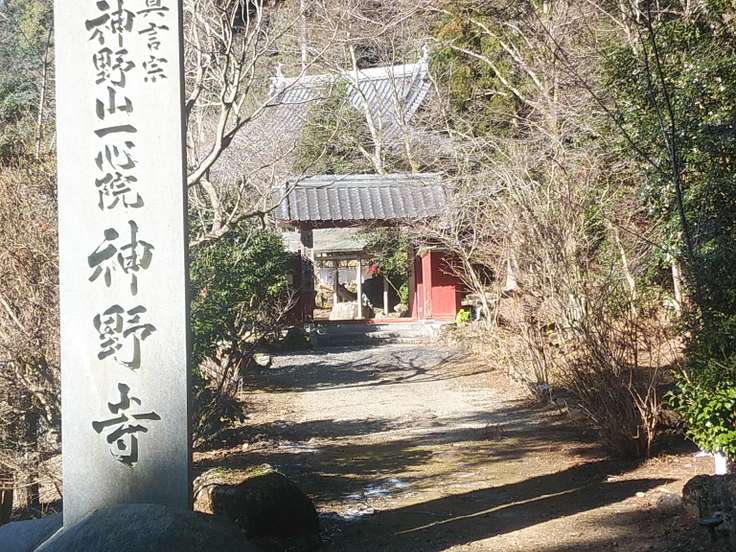 真言宗
神野山一心院
神野寺